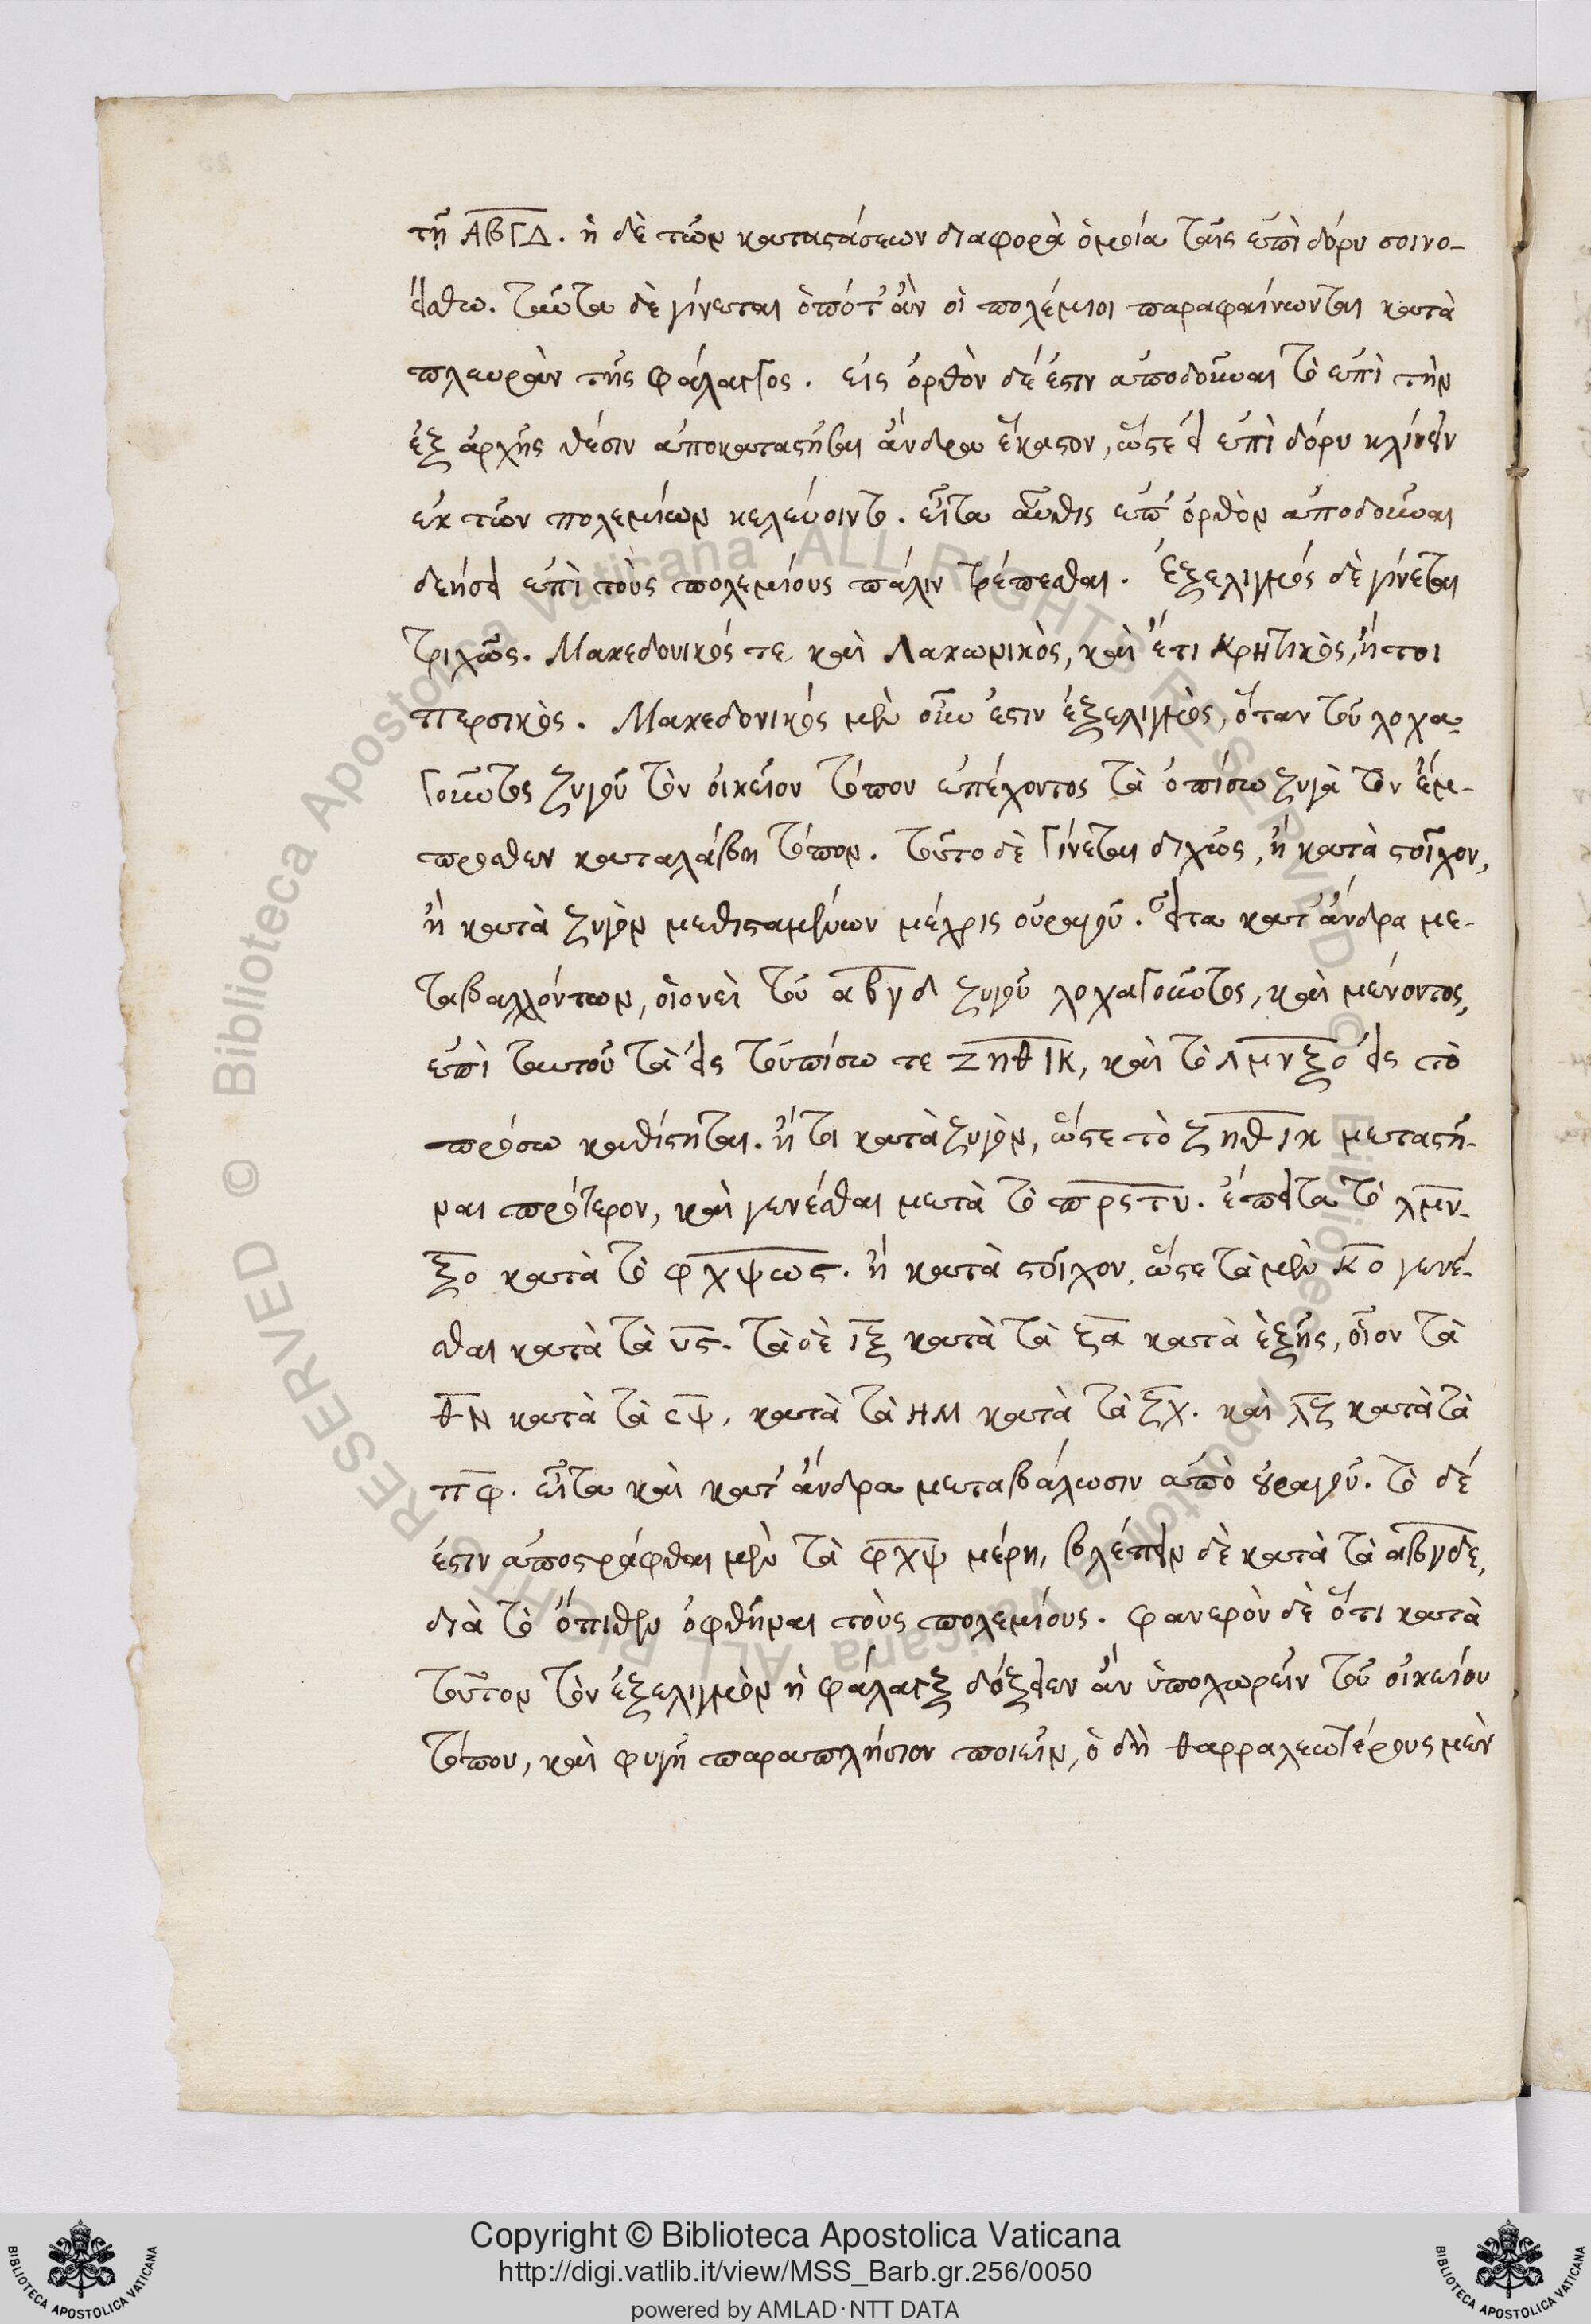 τῇ ΑΒΓΔ. ἡ δὲ τῶν καταστάσεων διαφορὰ ὁμοία ταῖς ἐπὶ δόρυ σοινο-
είσθω. ταῦτα δὲ γίνεται ὁπότ' ἂν οἱ πολέμιοι παραφαίνωνται κατὰ
πλευρὰν τῆς φάλαγγος. εἰς ὀρθὸν δέ ἐστιν ἀποδοῦναι τὸ ἐπὶ τὴν
ἐξ ἀρχῆς θέσιν ἀποκαταστῆσαι ἄνδρα ἕκαστον, ὥστε εἰ ἐπὶ δόρυ κλίνειν
ἐκ τῶν πολεμίων κελεύοιντο. εἶτα αὖθις ἐπ' ὀρθὸν ἀποδοῦναι
δεήσει ἐπὶ τοὺς πολεμίους πάλιν τρέπεσθαι. Ἐξελιγμός δὲ γίνεται
τριχῶς. Μακεδονικός τε καὶ Λακωνικὸς, καὶ ἔτι κρητικὸς, ἤτοι
περσικὸς. Μακεδονικός μὲν οὖν ἐστιν ἐξελιγμὸς, ὅταν τοῦ λοχα-
γοῦντος ζυγοῦ τὸν οἰκεῖον τόπον ἐπέχοντος τὰ ὀπίσω ζυγὰ τὸν ἔμ-
προσθεν καταλάβῃ τόπον. τοῦτο δὲ γίνεται διχῶς, ἢ κατὰ στοῖχον,
ἢ κατὰ ζυγὸν μεθισταμένων μέχρις οὐραγοῦ. εἶτα κατ' ἄνδρα με-
ταβαλλόντων, οἱονεὶ τοῦ αβγδ ζυγοῦ λοχαγοῦντος, καὶ μένοντος,
ἐπὶ ταυτοῦ τὰ εἰς τοὐπίσω τε ΖηθΙΚ, καὶ τὸ λμνξο εἰς τὸ
πρόσω καθίστηται. ἤτοι κατὰ ζυγὸν, ὥστε τὸ ζηθικ μεταστῆ-
ναι πρότερον, καὶ γενέσθαι μετὰ τὸ πρςτυ. ἔπειτα τὸ λμν-
ξο κατὰ τὸ φχψως. ἢ κατὰ στοῖχον, ὥστε τὰ μὲν κο γενέ-
σθαι κατὰ τὰ υς. τὰ δὲ ιξ κατὰ τὰ ξα κατὰ ἑξῆς, οἷον τὰ
θΝ κατὰ τὰ cψ, κατὰ τὰ ΗΜ κατὰ τὰ ξχ. καὶ λζ κατὰ τὰ
πφ. εἶτα καὶ κατ' ἄνδρα μεταβάλωσιν ἀπὸ οὐραγοῦ. τὸ δέ
ἐστιν ἀπεστράφθαι μὲν τὰ φχψ μέρη, βλέπειν δὲ κατὰ τὰ αβγδε,
διὰ τὸ ὄπισθεν ὀφθῆναι τοὺς πολεμίους. φανερὸν δὲ ὅτι κατὰ
τοῦτον τὸν ἐξελιγμὸν ἡ φάλαγξ δόξειεν ἂν ὑποχωρεῖν τοῦ οἰκείου
τόπου, καὶ φυγῇ παραπλήσιον ποιεῖν, ὃ δὴ θαρραλεωτέρους μὲν
Copyright © Biblioteca Apostolica Vaticana
http://digi.vatlib.it/view/MSS_Barb.gr.256/0050
powered by AMLAD·NTT DATA